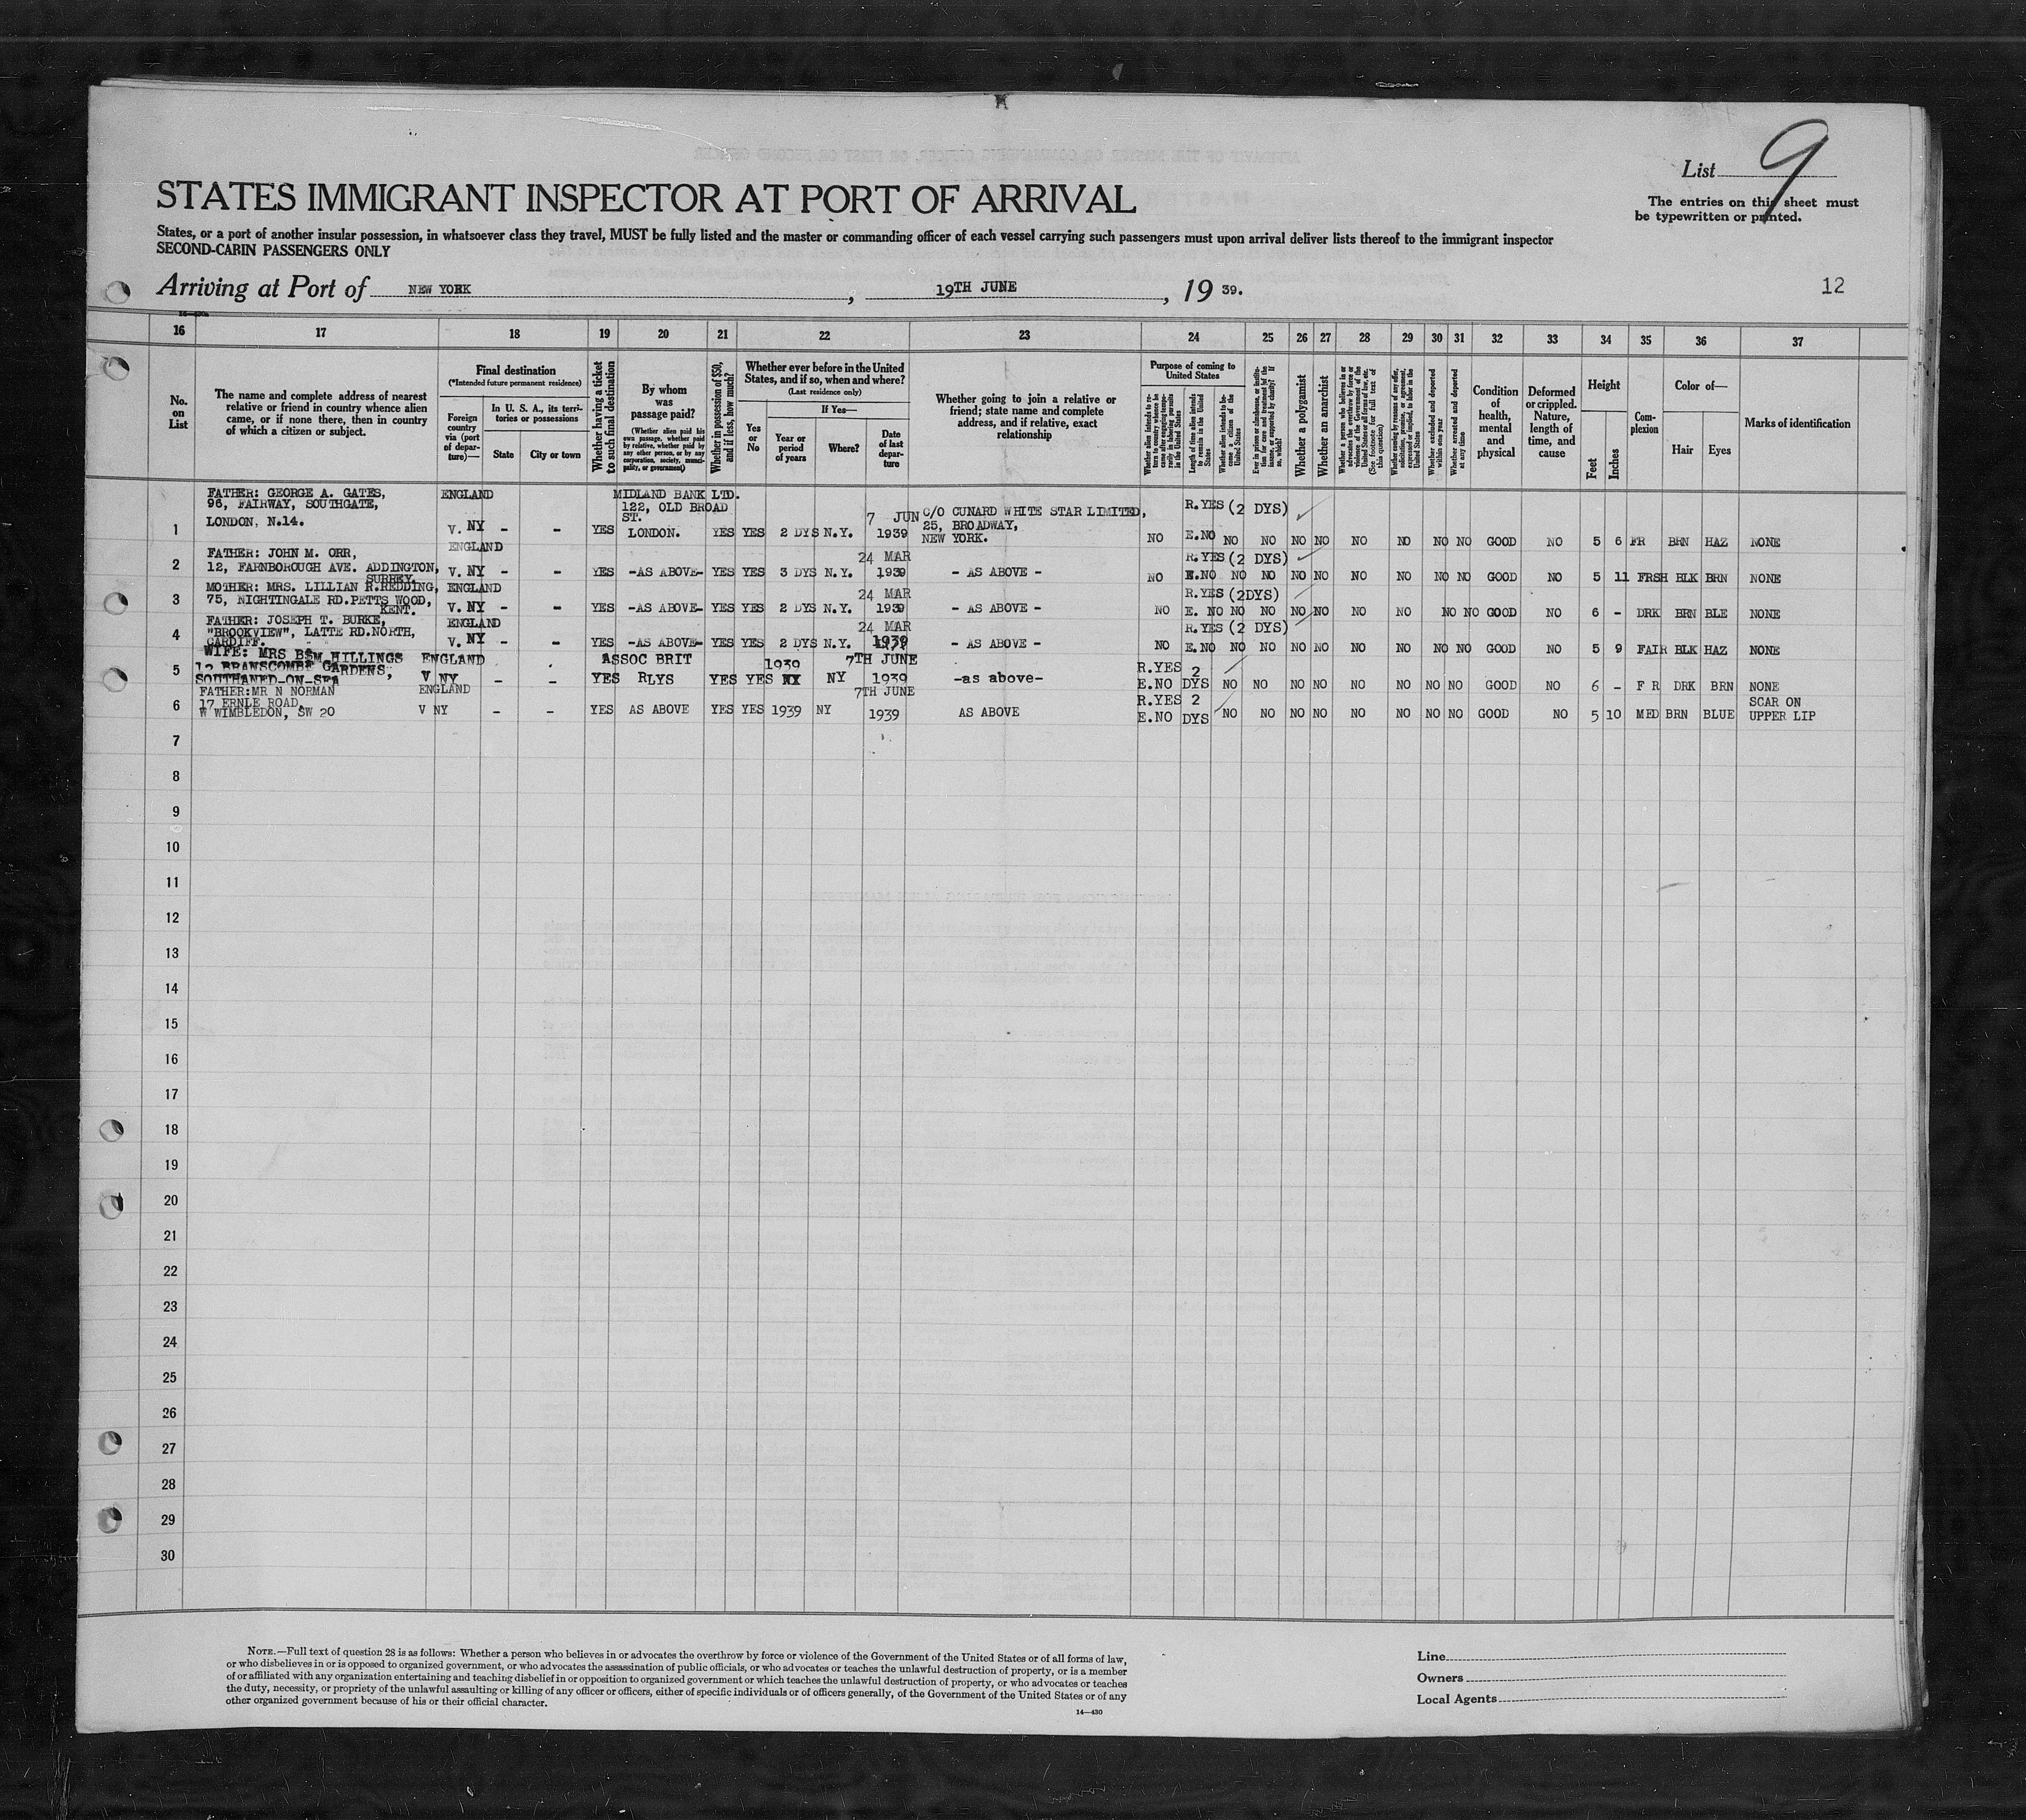 List 9
The entries on this sheet must
be typewritten or printed.
STATES IMMIGRANT INSPECTOR AT PORT OF ARRIVAL
States, or a port of another insular possession, in whatsoever class they travel, MUST be fully listed and the master or commanding officer of each vessel carrying such passengers must upon arrival deliver lists thereof to the immigrant inspector
SECOND-CABIN PASSENGERS ONLY
Arriving at Port of NEW YORK, 19TH JUNE, 19 39.
12
16 17 18 19 20 21 22 23 24 25 26 27 28 29 30 31 32 33 34 35 36 37
No. on List
The name and complete address of nearest
relative or friend in country whence alien
came, or if none there, then in country
of which a citizen or subject.
Final destination
(*Intended future permanent residence)
Foreign country via (port of departure)—
In U. S. A., its territories or possessions
State
City or town
Whether having a ticket to such final destination
By whom was passage paid?
(Whether alien paid his own passage, whether paid by relative, whether paid by any other person, or by any corporation, society, municipality, or government)
Whether in possession of $50, and if less, how much?
Whether ever before in the United
States, and if so, when and where?
(Last residence only)
Yes or No
If Yes—
Year or period of years
Where?
Date of last departure
Whether going to join a relative or
friend; state name and complete
address, and if relative, exact
relationship
Purpose of coming to
United States
Length of time alien intends to remain in the United States
Whether alien intends to become a citizen of the United States
Whether a polygamist
Whether an anarchist
Whether arrested and deported at any time
Condition of health, mental and physical
Deformed or crippled. Nature, length of time, and cause
Height
Feet
Inches
Complexion
Color of—
Hair
Eyes
Marks of identification
FATHER: GEORGE A. GATES, ENGLAND MIDLAND BANK LTD.
96, FAIRWAY, SOUTHGATE, 122, OLD BROAD ST. 7 JUN C/O CUNARD WHITE STAR LIMITED, R.YES (2 DYS)
LONDON, N.14. 25, BROADWAY,
1 V. NY - - YES LONDON. YES YES 2 DYS N.Y. 1939 NEW YORK. NO E.NO NO NO NO NO NO NO NO NO GOOD NO 5 6 FR BRN HAZ NONE
FATHER: JOHN M. ORR, ENGLAND 24 MAR R.YES (2 DYS)
2 12, FARNBOROUGH AVE. ADDINGTON, SURREY. V. NY - - YES -AS ABOVE- YES YES 3 DYS N.Y. 1939 - AS ABOVE - NO E.NO NO NO NO NO NO NO NO NO GOOD NO 5 11 FRSH BLK BRN NONE
MOTHER: MRS. LILLIAN R.REDDING, ENGLAND 24 MAR R.YES (2DYS)
3 75, NIGHTINGALE RD.PETTS WOOD, KENT. V. NY - - YES -AS ABOVE- YES YES 2 DYS N.Y. 1939 - AS ABOVE - NO E. NO NO NO NO NO NO NO NO NO GOOD NO 6 - DRK BRN BLE NONE
FATHER: JOSEPH T. BURKE, ENGLAND 24 MAR R.YES (2 DYS)
4 "BROOKVIEW", LATTE RD.NORTH, CARDIFF. V. NY - - YES -AS ABOVE- YES YES 2 DYS N.Y. 1939 - AS ABOVE - NO E.NO NO NO NO NO NO NO NO NO GOOD NO 5 9 FAIR BLK HAZ NONE
WIFE: MRS HILLINGS ENGLAND ASSOC BRIT 1939 7TH JUNE R.YES 2
5 12 BRANSCOMBE GARDENS,
SOUTHANED-ON-SEA V NY - - YES RLYS YES YES NY 1939 -as above- E.NO DYS NO NO NO NO NO NO NO NO GOOD NO 6 - F R DRK BRN NONE
FATHER:MR N NORMAN ENGLAND 7TH JUNE R.YES 2 SCAR ON
6 17 ERNLE ROAD,
W WIMBLEDON, SW 20 V NY - - YES AS ABOVE YES YES 1939 NY 1939 AS ABOVE E.NO DYS NO NO NO NO NO NO NO NO GOOD NO 5 10 MED BRN BLUE UPPER LIP
7
8
9
10
11
12
13
14
15
16
17
18
19
20
21
22
23
24
25
26
27
28
29
30
NOTE.—Full text of question 28 is as follows: Whether a person who believes in or advocates the overthrow by force or violence of the Government of the United States or of all forms of law,
or who disbelieves in or is opposed to organized government, or who advocates the assassination of public officials, or who advocates or teaches the unlawful destruction of property, or is a member
of or affiliated with any organization entertaining and teaching disbelief in or opposition to organized government or which teaches the unlawful destruction of property, or who advocates or teaches
the duty, necessity, or propriety of the unlawful assaulting or killing of any officer or officers, either of specific individuals or of officers generally, of the Government of the United States or of any
other organized government because of his or their official character.
14—430
Line
Owners
Local Agents